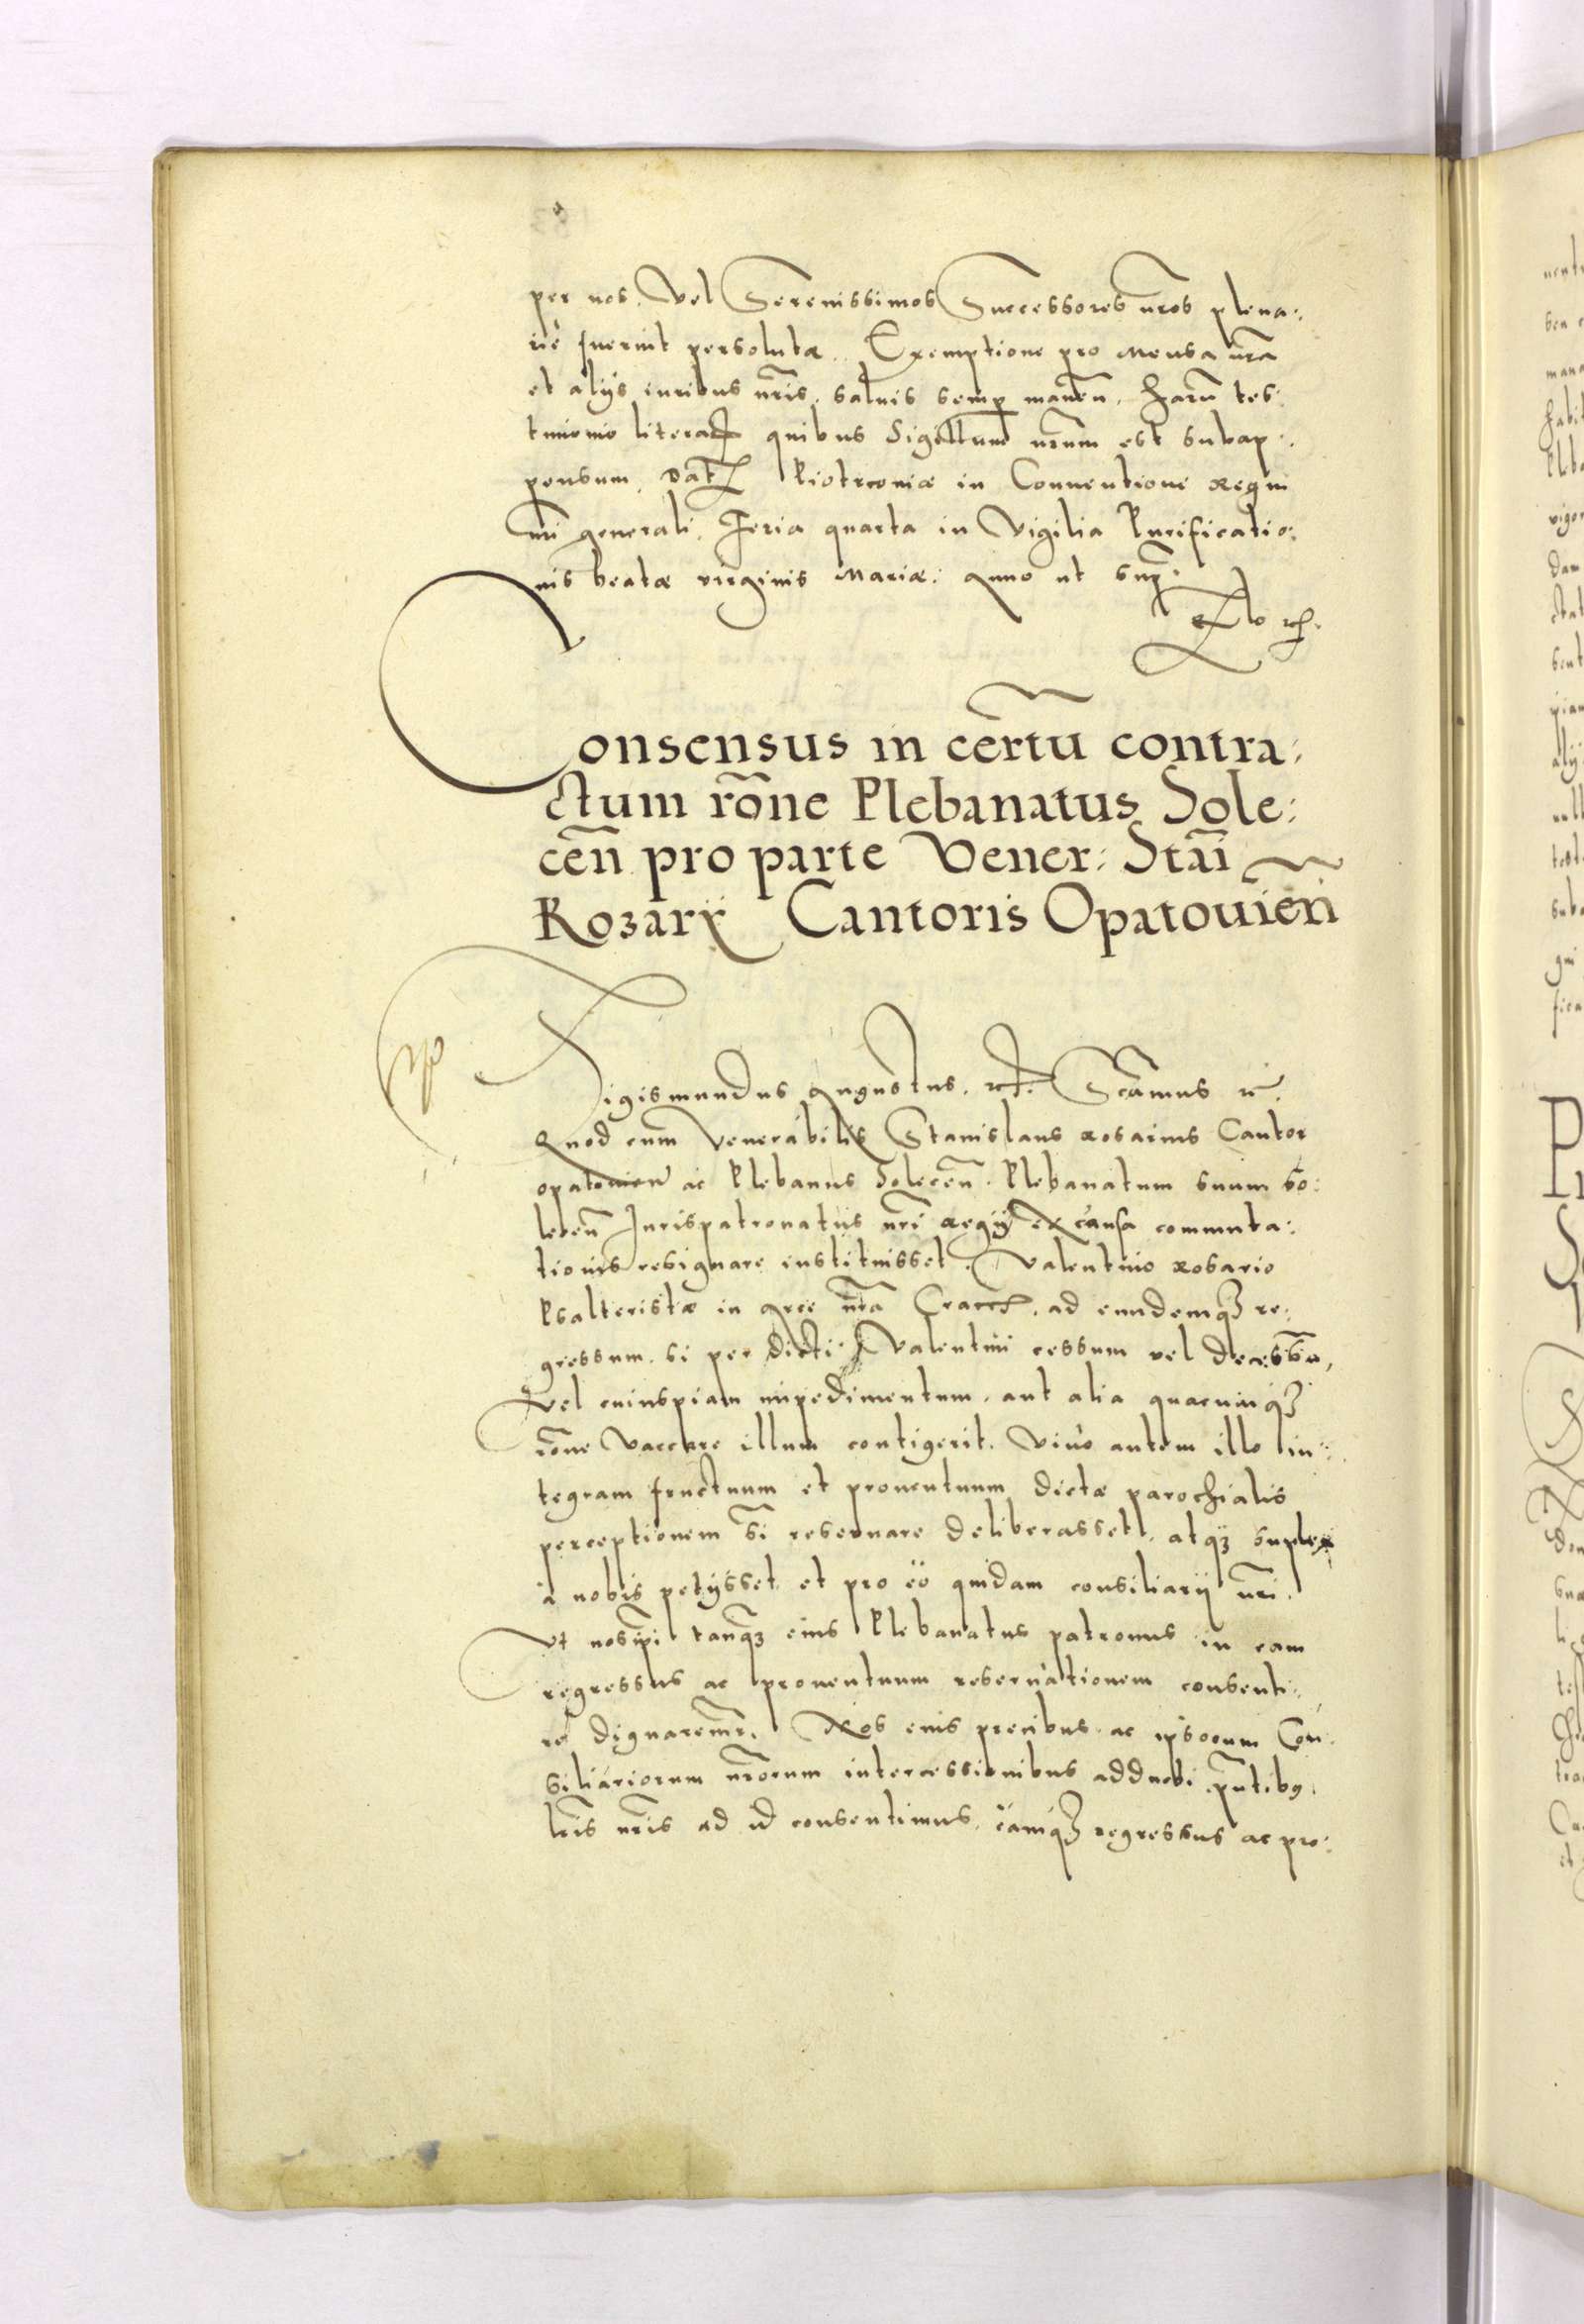 per nos, Vel Serenissimos Successores nr̃os plena:
rie fuerint persolutæ. Exemptione pro mensa nr̃a
et alijs iuribus nr̃is, saluis semp manẽn, harũ tes:
timonio literaꝝ quibus Sigillum nr̃um est subap:
pensum, Dat Piotrconiæ in Conuentione Regni
nr̃i generali, Feria quarta in Vigilia Purificatio:
nis beatæ virginis Mariæ: Anno ut sup̃.
Consensus in cẽrtũ contra:
ctum rõne Plebanatus Sole:
cẽn pro parte Vener: Stãi
Rozarij Cantoris Opatouiẽn
Sigismundus Augustus, etc. Sẽamus etc.
Quod cum Venerabilis Stanislaus Rosarius Cantor
opatouien̄ ac Plebanus Solecẽn. Plebanatum suum So:
lecẽn Jurispatronatus nr̃i Regij ex causa commuta:
tionis resignare instituisset. Valentino Rosario
Psalteristæ in Arce nr̃a Cracc, ad eundemqꝫ re:
gressum, si per dicti Valentini cessum vel decessũ,
Vel cuiuspiam impedimentum, aut alia quacunqꝫ
rõne vaccare illum contigerit. Viuo autem illo in:
tegram fructuum et prouentuum dictæ parochialis
perceptionem S̃i reseruare deliberasset, atqꝫ suplex
à nobis petijsset, et pro eo quidam consiliarij nr̃i.
Vt nosip̃i tanqꝫ eius Plebanatus patronus in eam
regressus ac prouentuum reseruationem consenti:
re dignaremr̃. Nos eius precibus, ac ipsorum Con:
siliariorum nr̃orum intercessionibus adducti p̃ntibꝰ
lr̃is nr̃is ad id consentimus, eamqꝫ regressus ac pro: